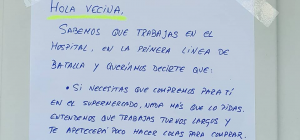 HOLA VECINA,
SABEMOS QUE TRABAJAS EN EL
HOSPITAL, EN LA PRIMERA LÍNEA DE
BATALLA Y QUERÍAMOS DECIRTE QUE:
• SI NECESITAS QUE COMPREMOS PARA TÍ
EN EL SUPERMERCADO, NADA MÁS QUE LO PIDAS.
ENTENDEMOS QUE TRABAJAS TURNOS LARGOS Y
TE APETECERÁ POCO HACER COLAS PARA COMPRAR.